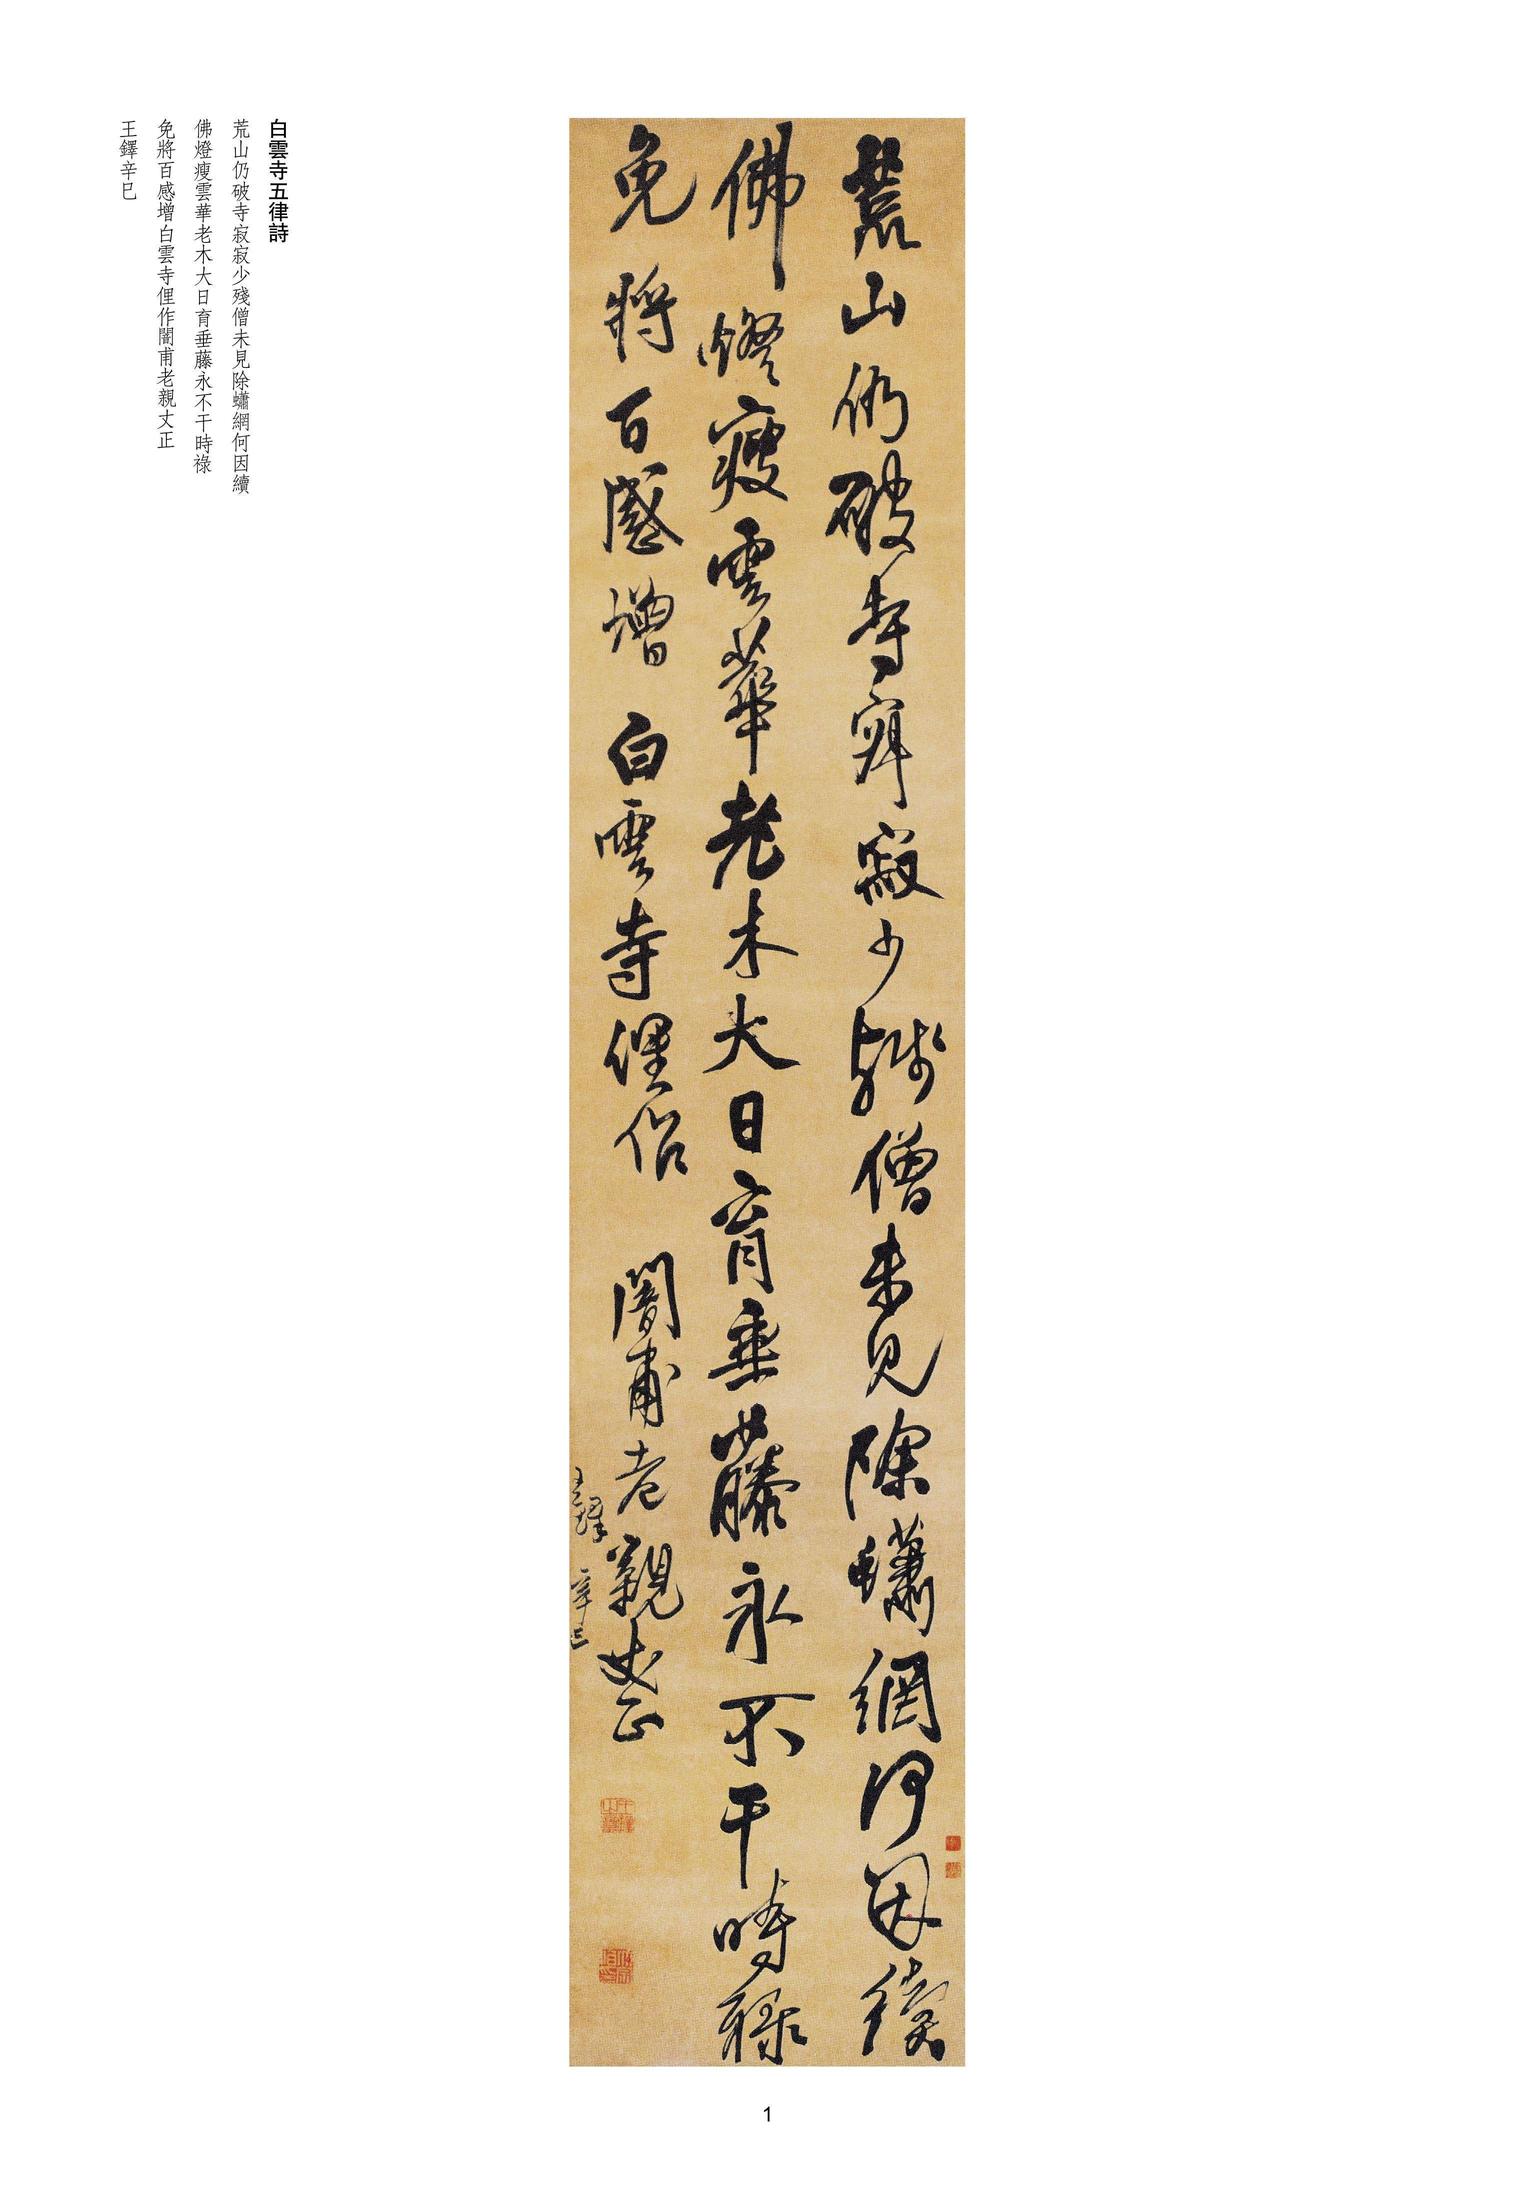 荒山仍破寺寂寂少殘僧未見除蠨網何因續
佛燈瘦雲華老木大日育垂藤永不干時祿
免將百感增 白雲寺俚作 闇甫老親丈正
王鐸 辛巳
白雲寺五律詩
荒山仍破寺寂寂少殘僧未見除蠨網何因續
佛燈瘦雲華老木大日育垂藤永不干時祿
免將百感增白雲寺俚作闇甫老親丈正
王鐸辛巳
1